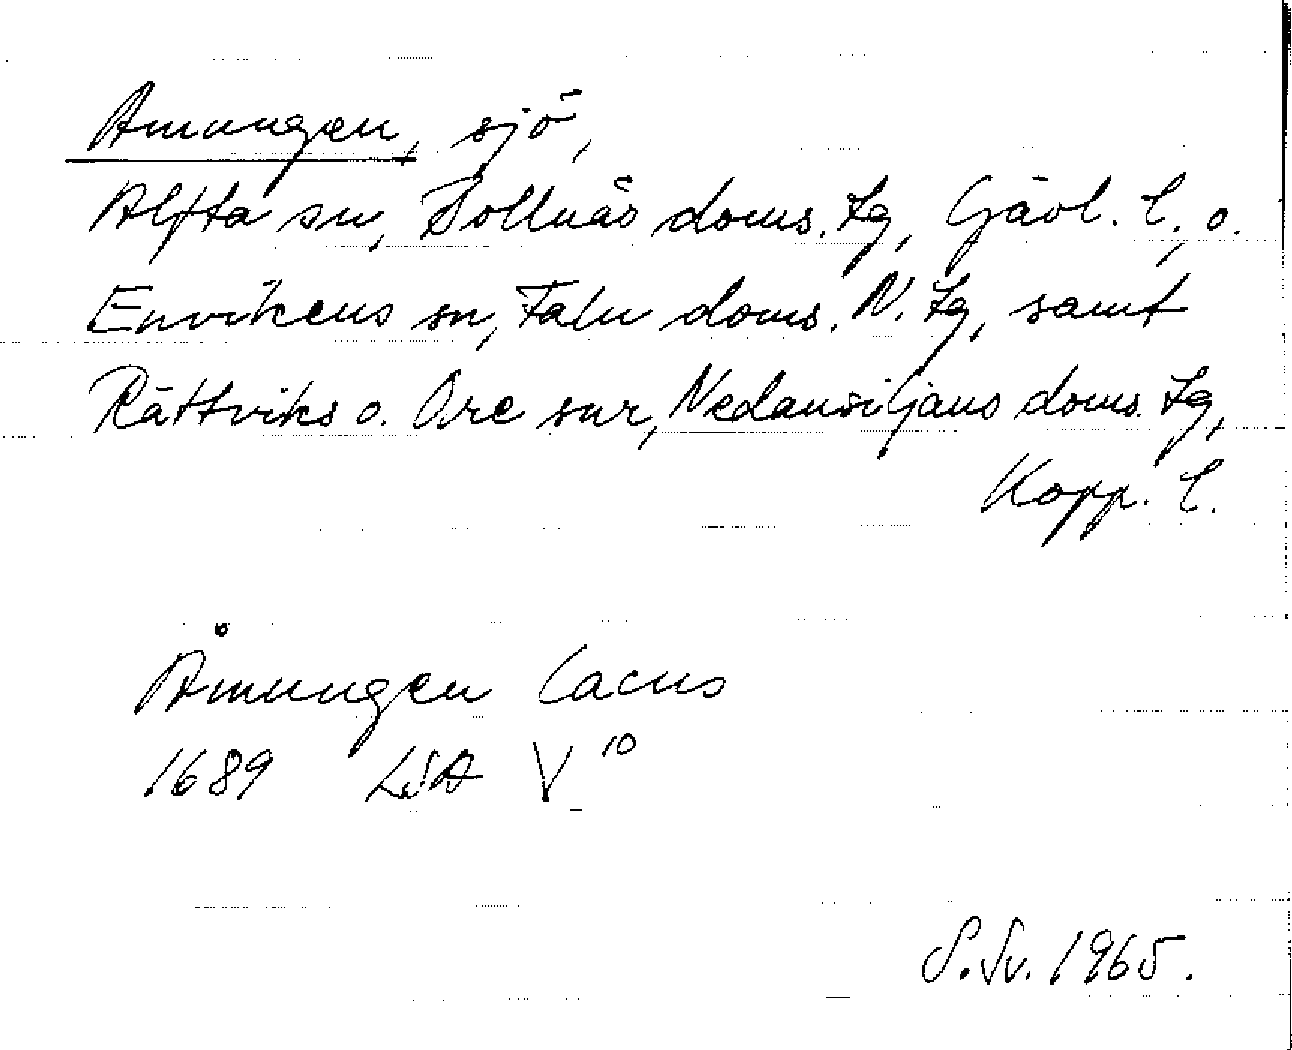 Amungen, sjö,
Alfta sn, Bollnäs doms. tg, Gävl. l., o.
Envikens sn, Falu doms. N. tg, samt
Rättviks o. Ore snr, Nedansiljans doms. tg,
Kopp. l.
Åmungen Lacus
1689 LSA V 10
S. Sv. 1965.